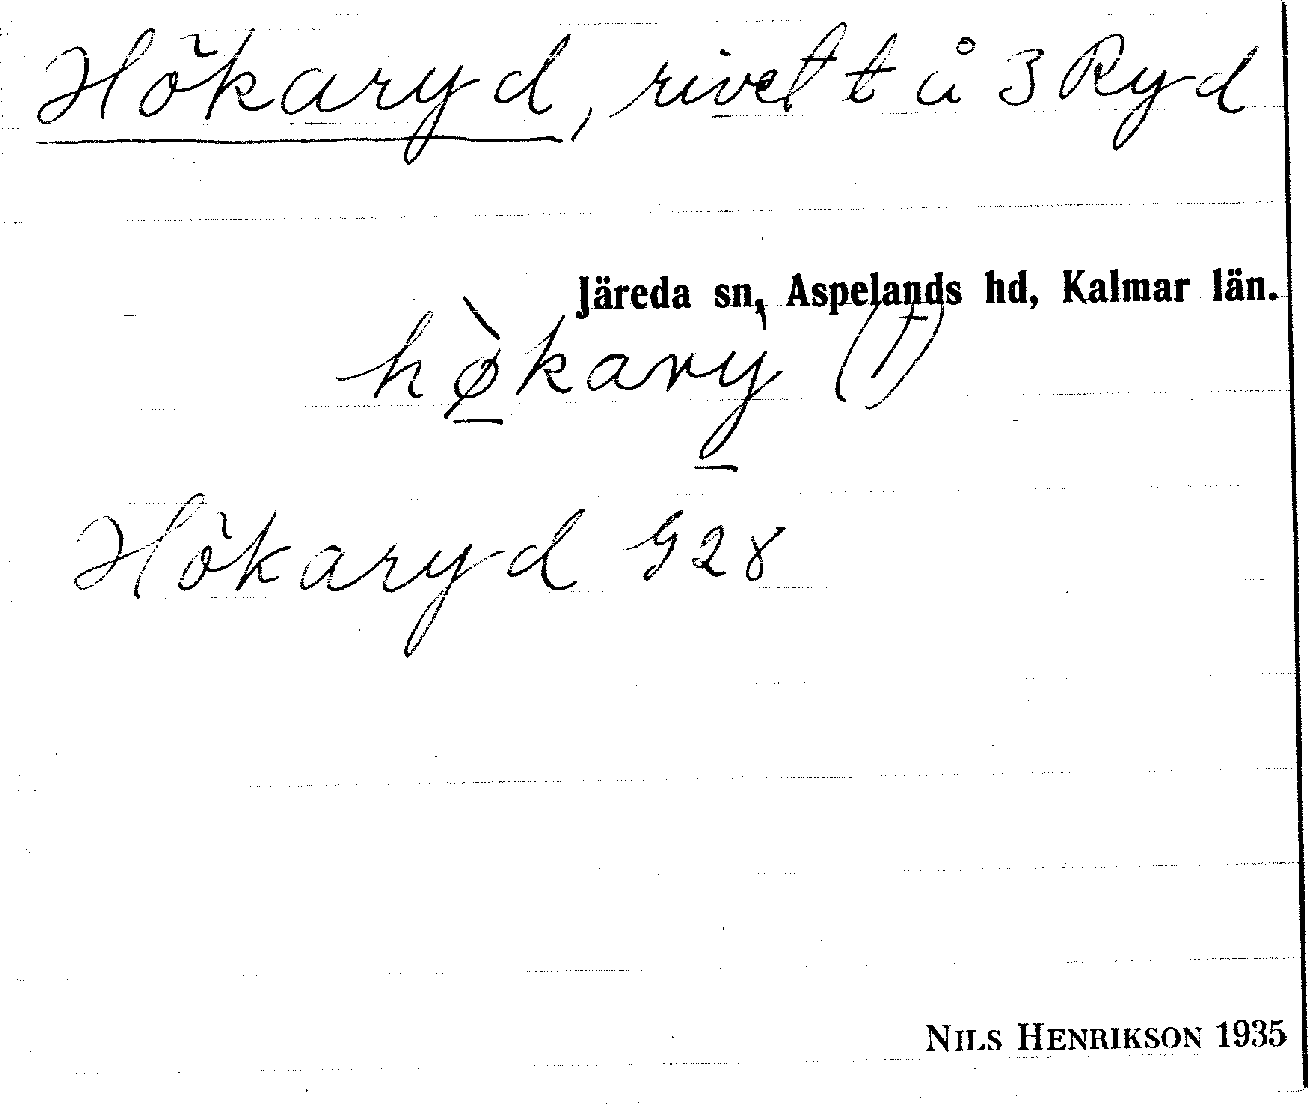 Hökaryd, rivet t å 3 Ryd
Järeda sn, Aspelands hd, Kalmar län.
hø̀kary (†)
Hökaryd G28
NILS HENRIKSON 1935